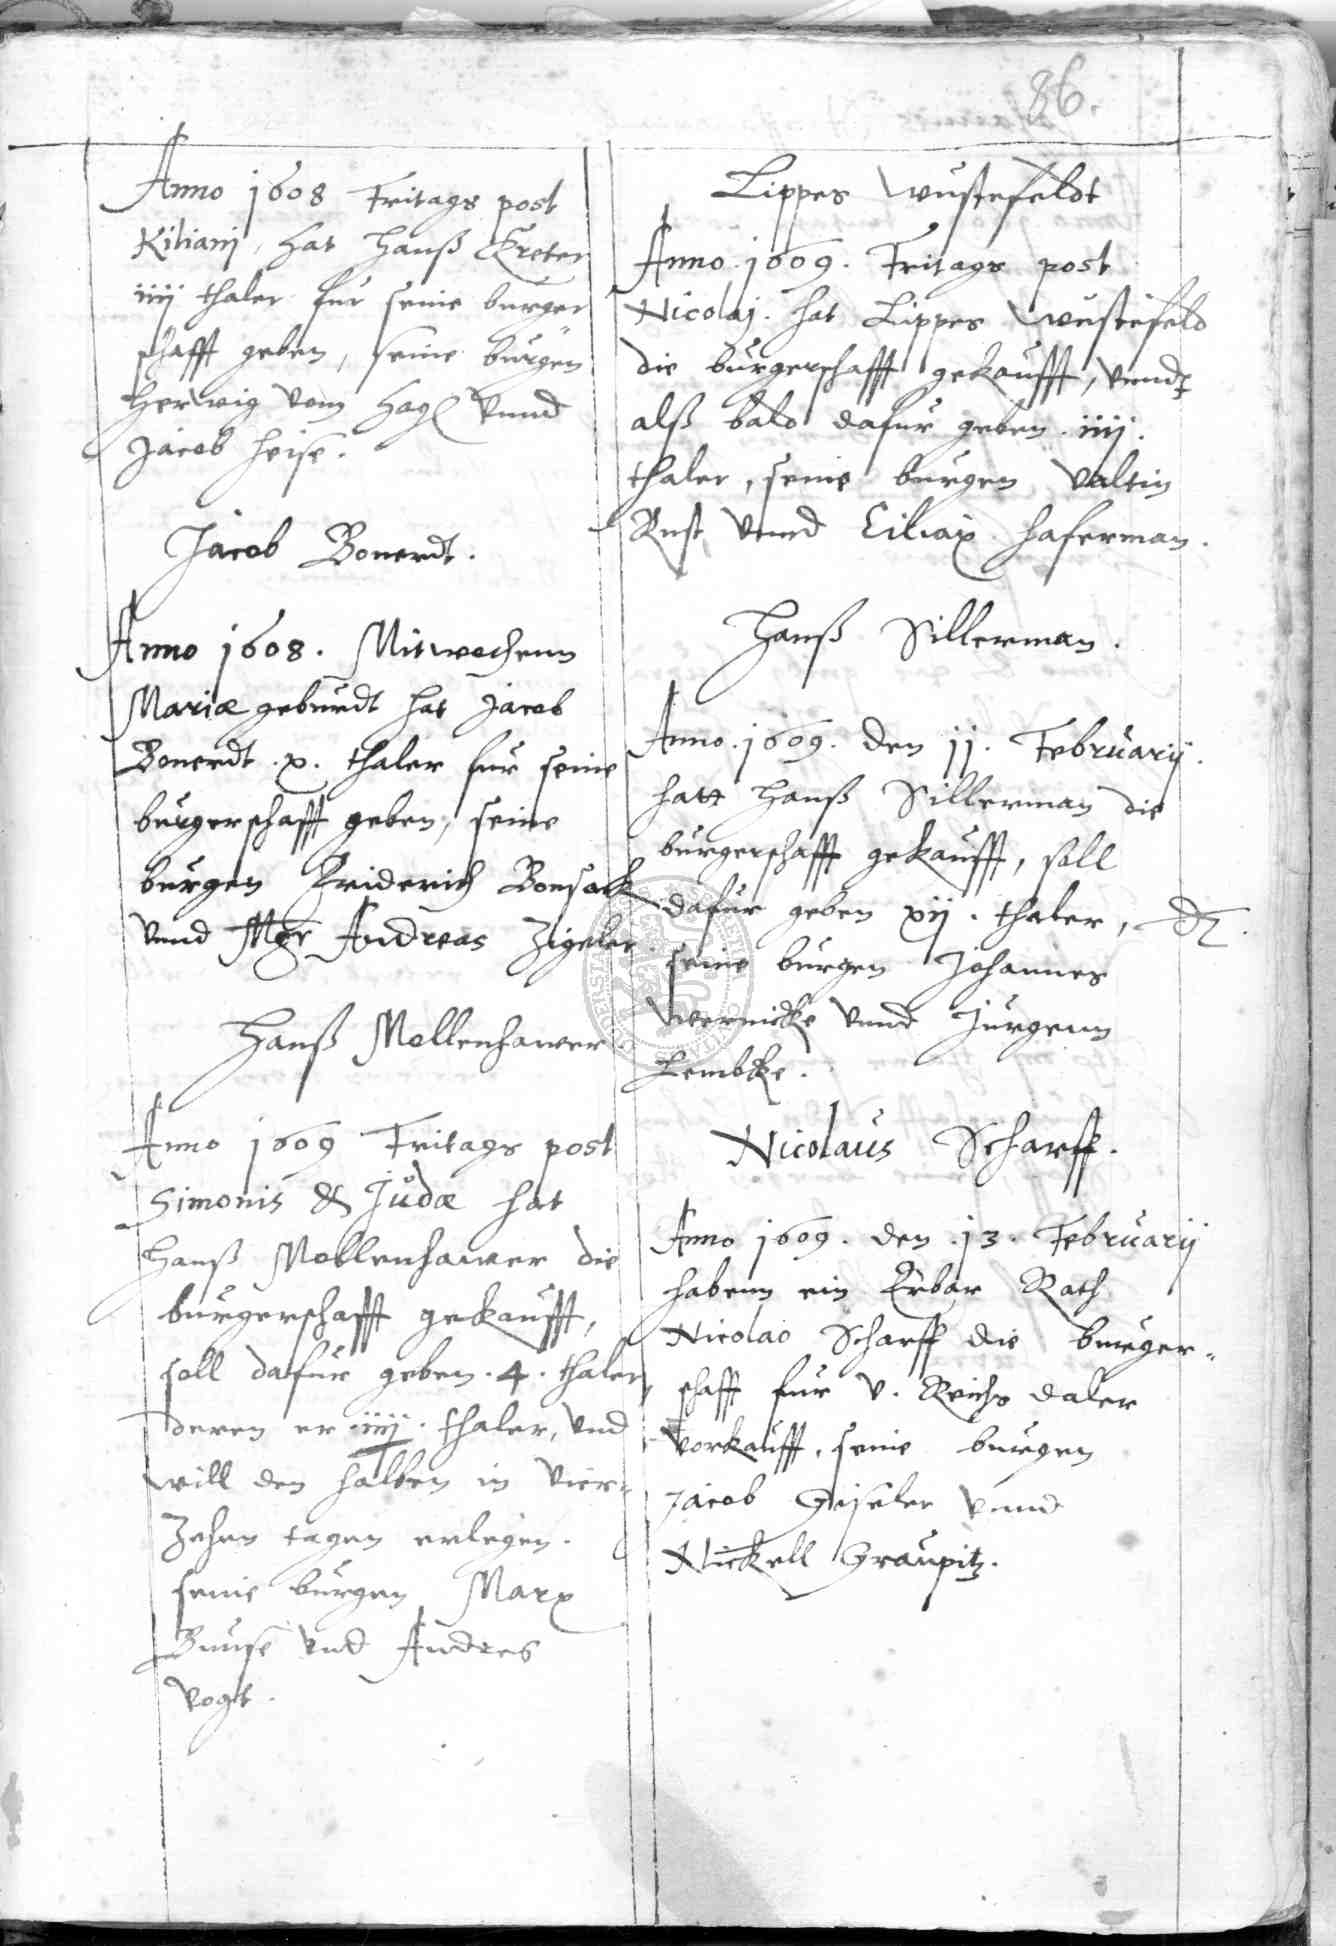 86.
Anno 1608 Fritags post
Kiliani, hat Hanß Kreter
iiij thaler fur seine burger
schafft geben, seine burgen
Herwig vom Hagen vnnd
Jacob Heise.
Jacob Bonerdt.
Anno 1608. Mitwochenn
Mariæ geburdt hat Jacob
Bonerdt .x. thaler fur seine
burgerschafft geben, seine
burgen Friderich Bonsack
vnnd Mgr Andreas Zigeler
Hanß Mollenhawer
Anno 1609 Fritags post
Simonis & Judæ hat
Hanß Mollenhawer die
burgerschafft gekaufft,
soll dafur geben .4. thaler,
deren er iiij. thaler, vnd
will den halben in vier-
zehen tagen erlegen.
seine burgen Marx
Buuse vnd Andres
Vogt.
Lippes Wustefeldt
Anno .1609. Fritags post
Nicolaj. hat Lippes Wustefeld
die burgerschafft gekaufft, vnndt
alß bald dafur geben .iiij.
thaler, seine burgen Valtin
Rust vnnd Ciliax Haferman.
Hanß Sillerman.
Anno .1609. den 11. Februarij.
hatt Hanß Sillerman die
burgerschafft gekaufft, soll
dafur geben xij. thaler, dt.
seine burgen Johannes
Wernicke vnnd Jurgenn
Lembcke.
Nicolaus Scharff.
Anno 1609. den .13. Februarij
habenn ein Erbar Rath
Nicolao Scharff die burger-
schafft fur v. Reichs daler
vorkaufft, seine burgen
Jacob Giseler vnnd
Nickell Graupitz.